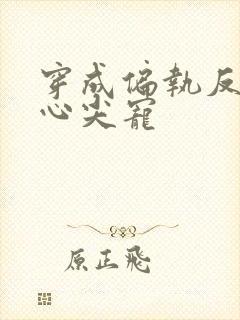 穿成偏執反
心尖寵
原正飛